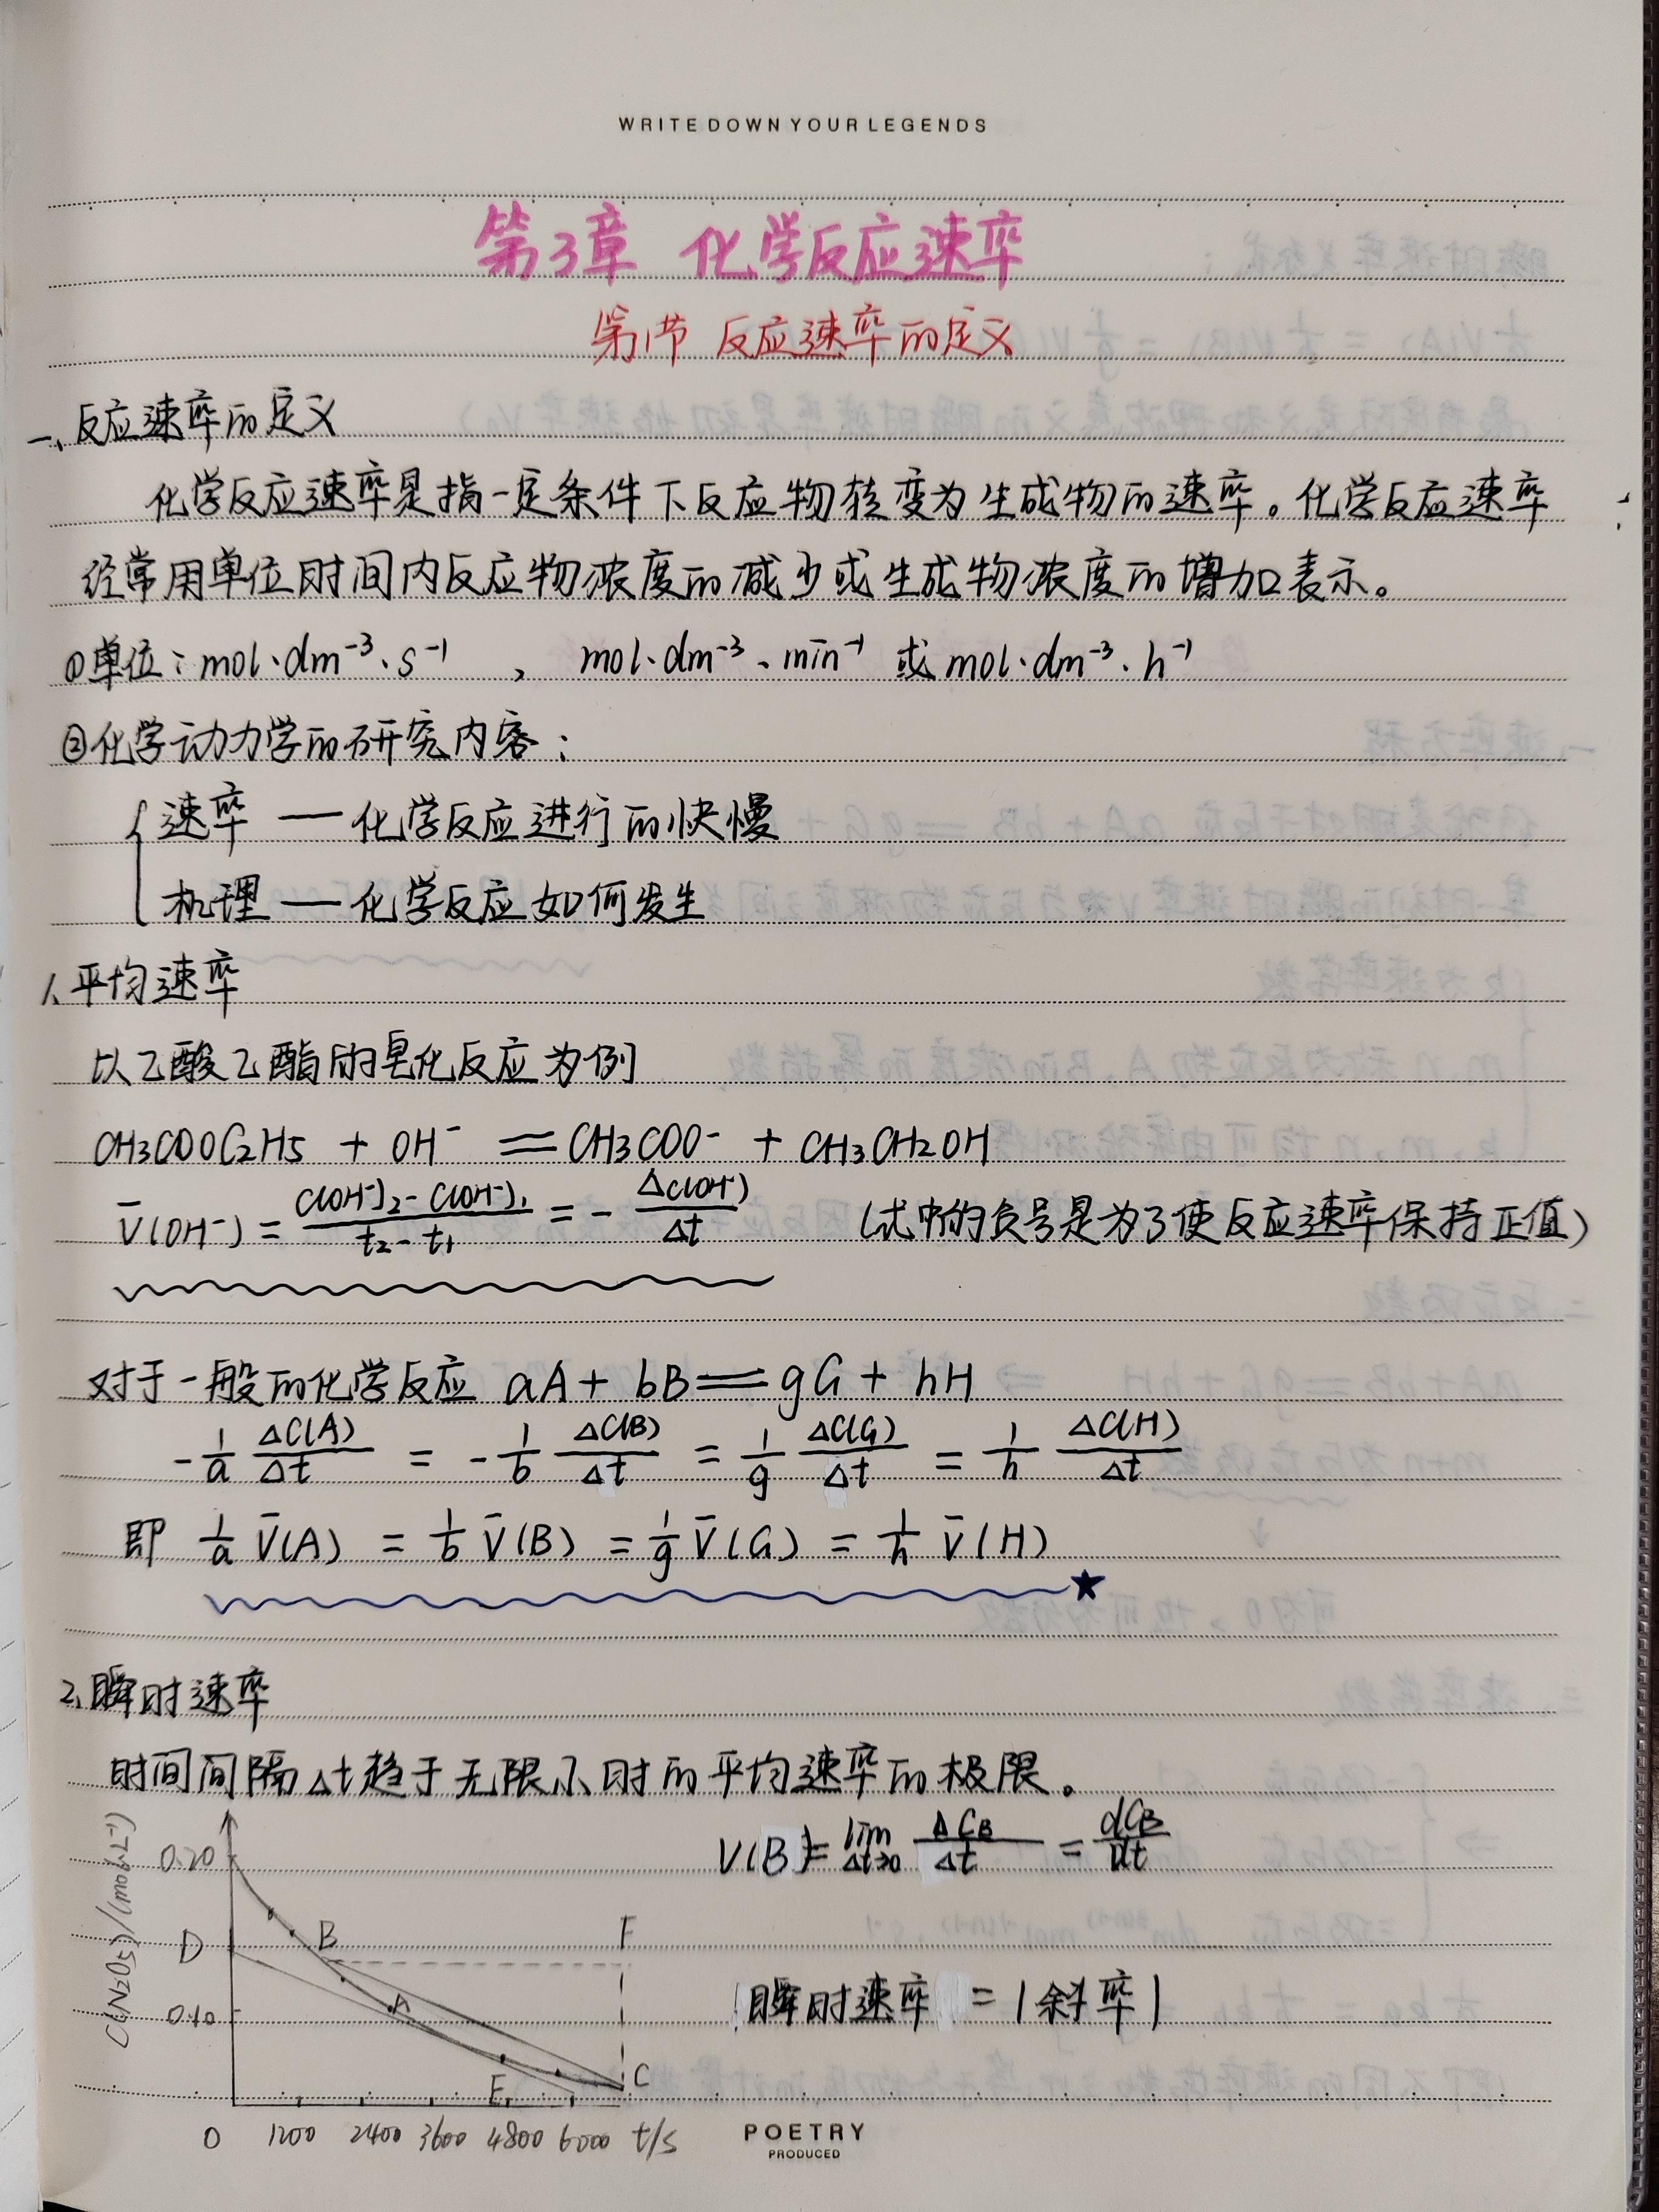 WRITE DOWN YOUR LEGENDS
第3章 化学反应速率
第1节 反应速率的定义
一、反应速率的定义
化学反应速率是指一定条件下反应物转变为生成物的速率。化学反应速率
经常用单位时间内反应物浓度的减少或生成物浓度的增加表示。
①单位：mol·dm⁻³·s⁻¹ , mol·dm⁻³·min⁻¹ 或 mol·dm⁻³·h⁻¹
②化学动力学的研究内容：
{ 速率 — 化学反应进行的快慢
机理 — 化学反应如何发生
1、平均速率
以乙酸乙酯的皂化反应为例
CH3COOC2H5 + OH⁻ == CH3COO⁻ + CH3CH2OH
v̄(OH⁻) = (C(OH⁻)₂ - C(OH⁻)₁)/(t₂ - t₁) = - ΔC(OH⁻)/Δt (式中的负号是为了使反应速率保持正值)
对于一般的化学反应 aA + bB == gG + hH
- 1/a ΔC(A)/Δt = - 1/b ΔC(B)/Δt = 1/g ΔC(G)/Δt = 1/h ΔC(H)/Δt
即 1/a v̄(A) = 1/b v̄(B) = 1/g v̄(G) = 1/h v̄(H) ★
2、瞬时速率
时间间隔Δt趋于无限小时的平均速率的极限。
V(B) = lim Δt→0 ΔCB/Δt = dCB/dt
C(N2O5)/(mol·L⁻¹)
0.20
D B F
A
0.10
瞬时速率 = |斜率|
E C
0 1200 2400 3600 4800 6000 t/s
POETRY
PRODUCED